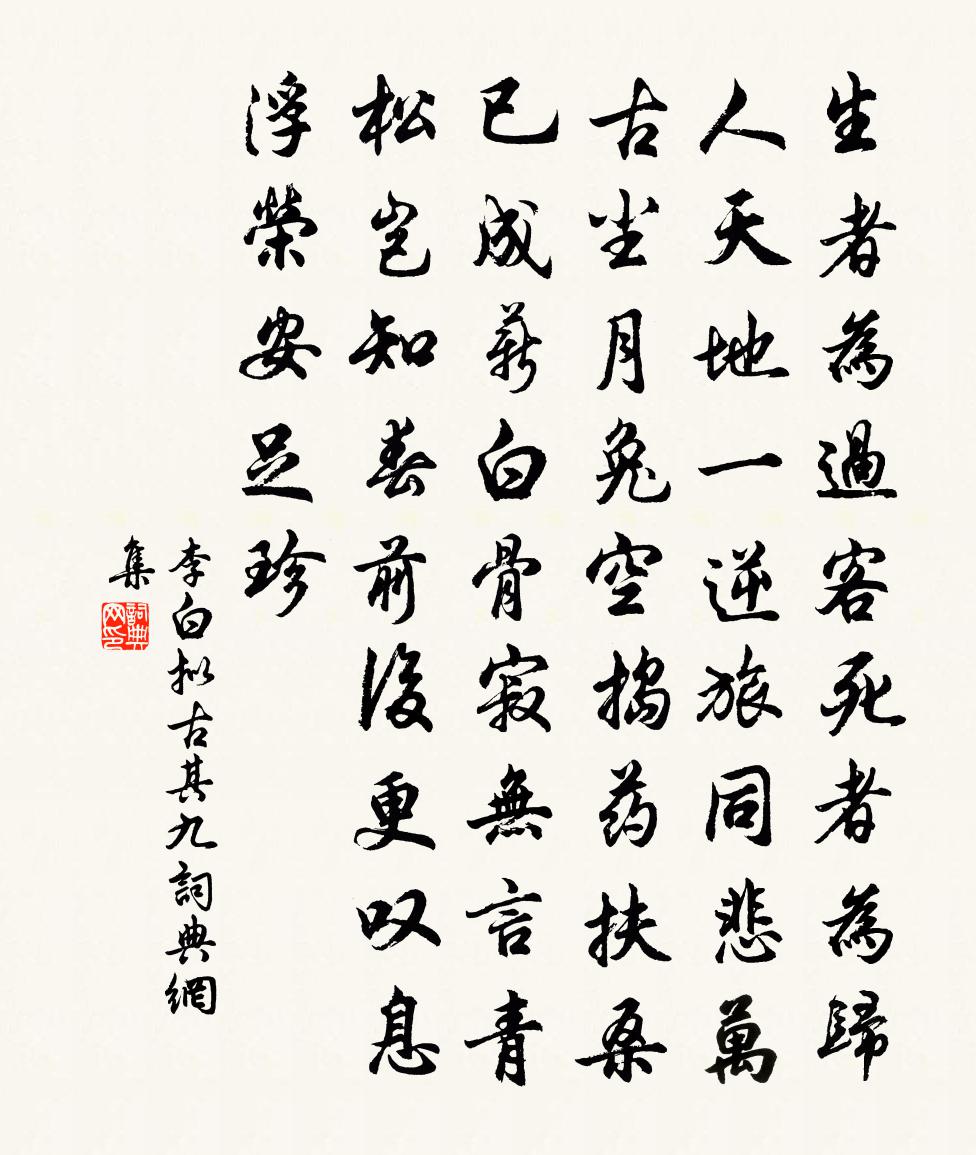 生者為過客死者為歸
人天地一逆旅同悲萬
古尘月兔空搗药扶桑
已成薪白骨寂無言青
松岂知春前後更叹息
浮榮安足珍
李白拟古其九詞典網
集
詞典网印